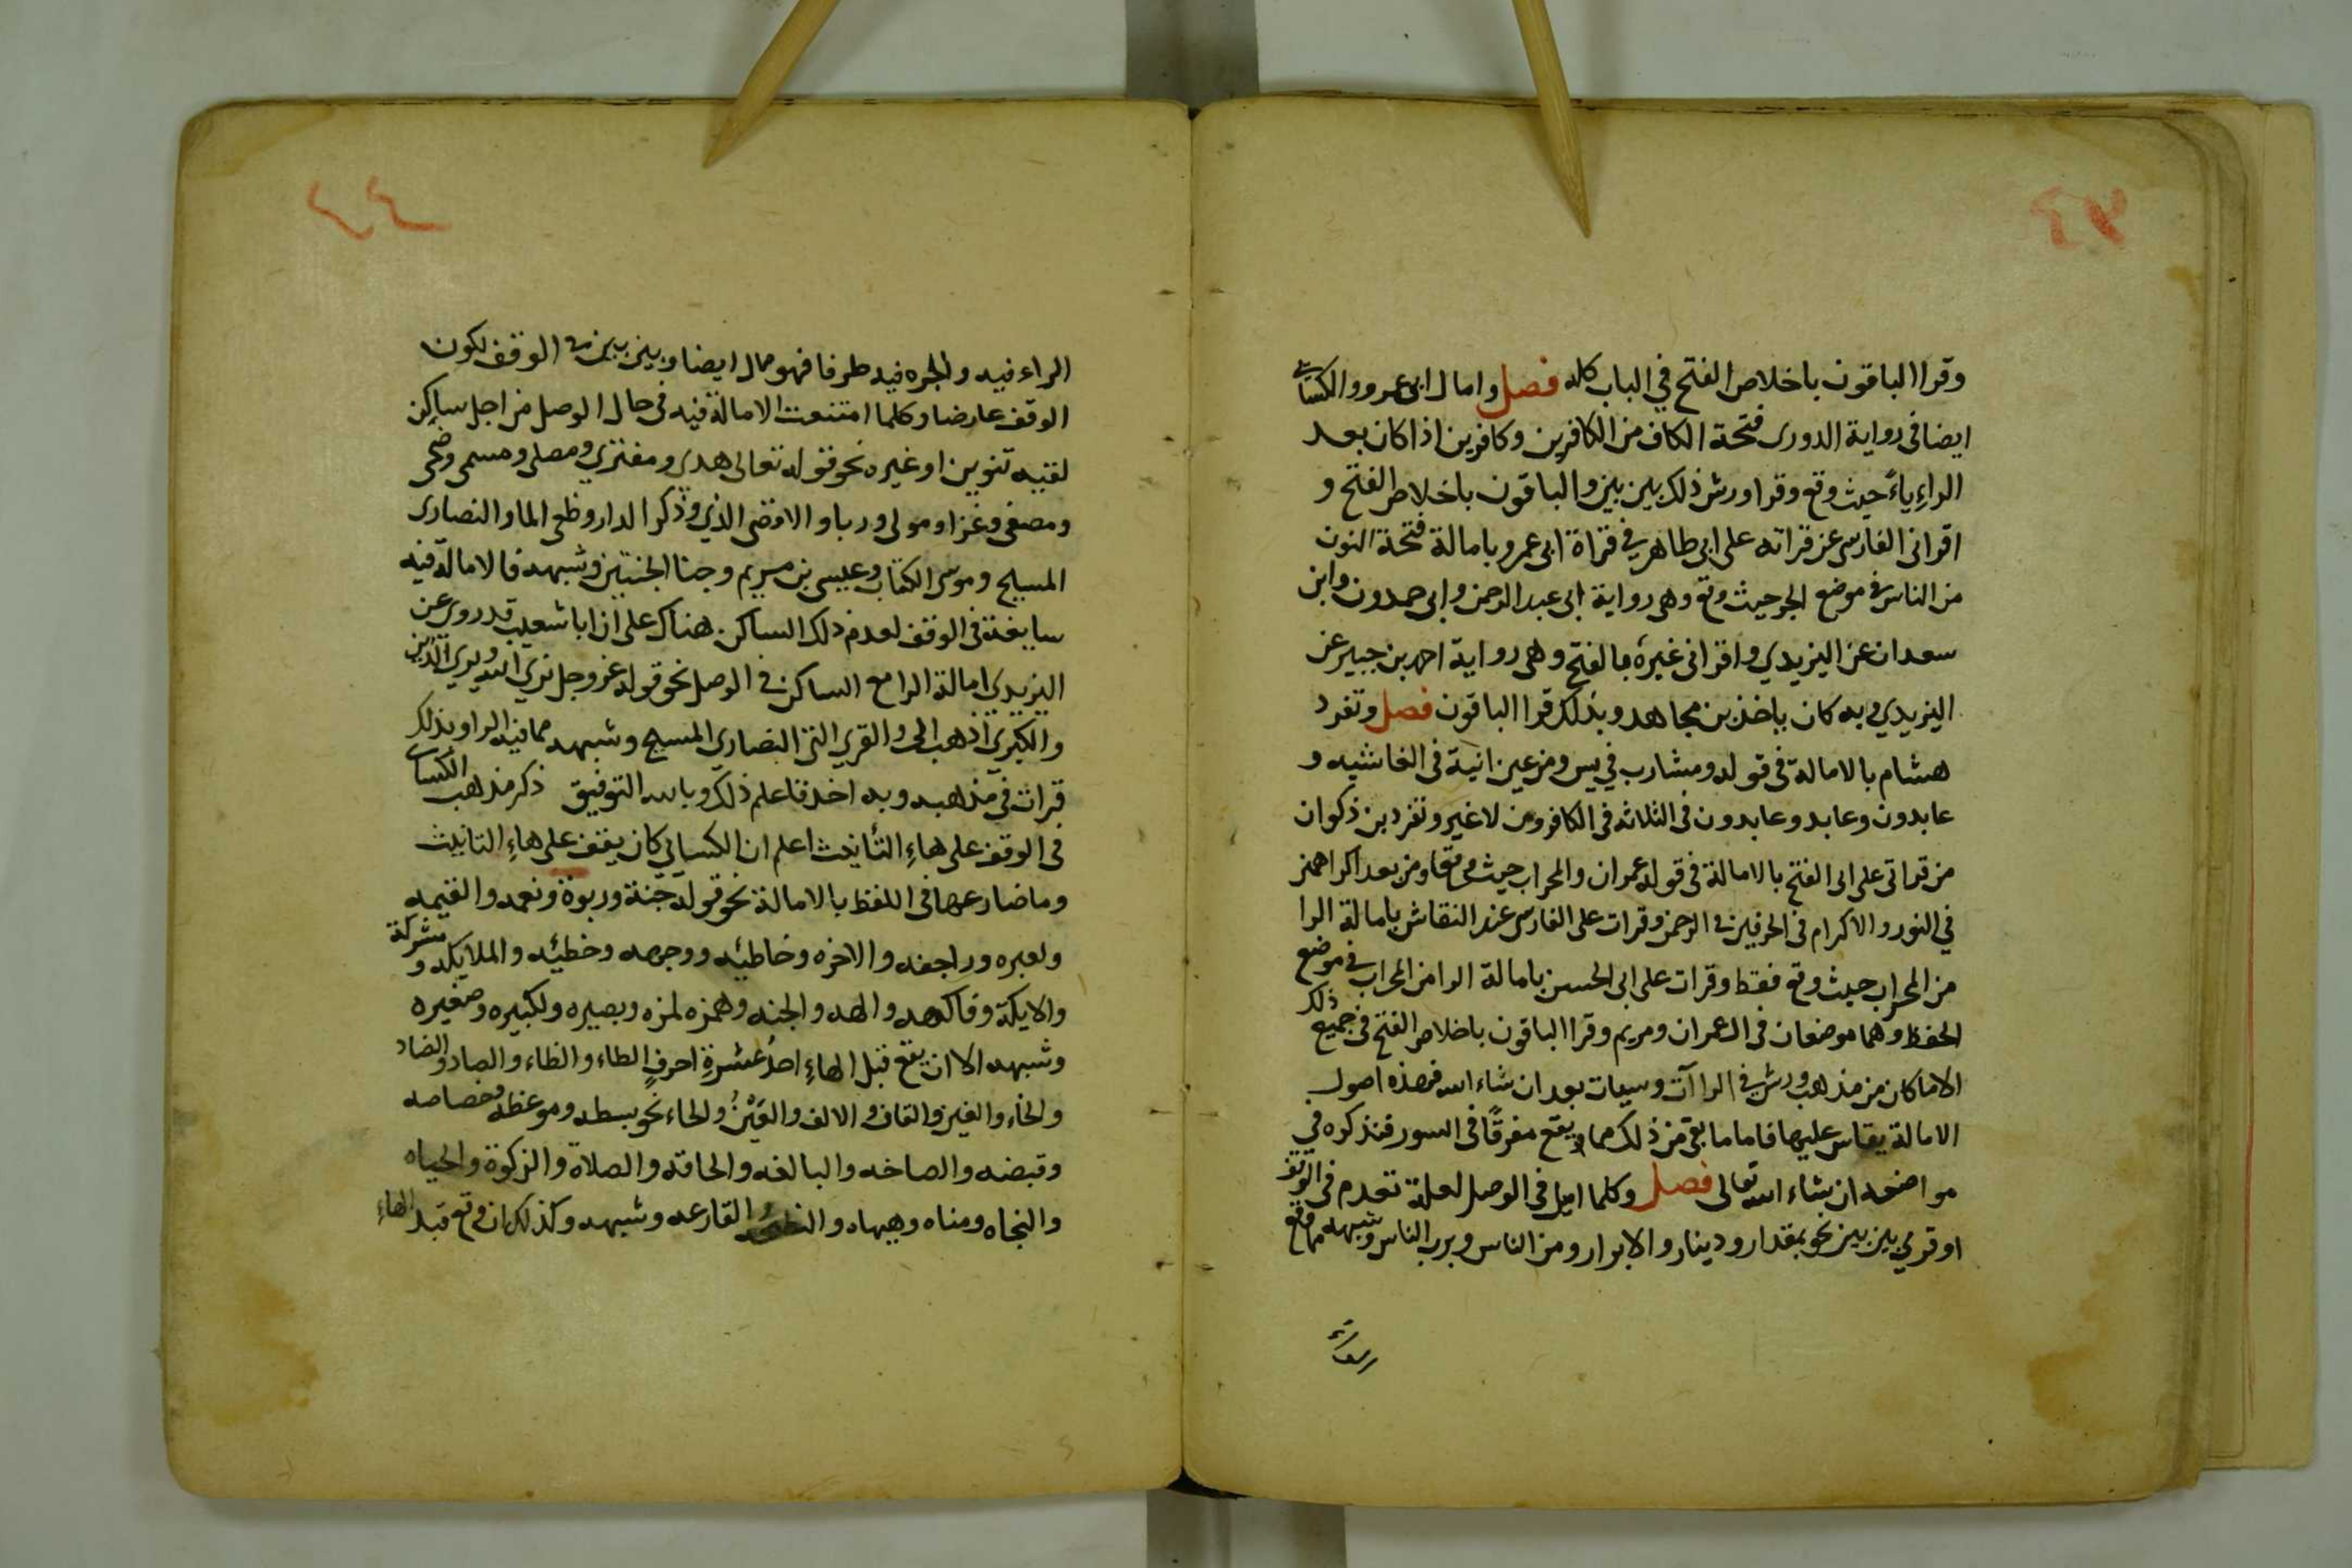 وقرا الباقون باخلاص الفتح في الباب كله فصل وامال ابو عمرو والكسائي
ايضا في رواية الدوري فتحة الكاف من الكافرين وكافرين اذا كان بعد
الراء ياءً حيث وقع وقرا ورش ذلك بين بين والباقون باخلاص الفتح و
اقراني الفارسي عن قراته على ابي طاهر في قراة ابي عمرو بامالة فتحة النون
من الناس في موضع الجر حيث وقع وهي رواية ابي عبد الرحمن وابي حمدون وابن
سعدان عن اليزيدي واقراني غيره بالفتح وهي رواية احمد بن جبير عن
اليزيدي وبه كان ياخذ بن مجاهد وبذلك قرا الباقون فصل وتفرد
هشام بالامالة في قوله ومشارب في يس ومن عين انية في الغاشيه و
عابدون وعابد وعابدون في الثلاثه في الكافرون لا غير وتفرد بن ذكوان
من قراتي على ابي الفتح بالامالة في قوله عمران والمحراب حيث وقعا ومن بعد اكراههن
في النور والاكرام في الحرفين في الرحمن وقرات على الفارسي عند النقاش بامالة الرا
من المحراب حيث وقع فقط وقرات على ابي الحسن بامالة الرا من المحراب في موضع
الخفظ وهما موضعان في ال عمران ومريم وقرا الباقون باخلاص الفتح في جميع ذلك
الا ما كان من مذهب ورش في الراآت وسيات بعد ان شاء الله فهذه اصول
الامالة يقاس عليها فاما ما بقى من ذلك مما يقع مفرقًا في السور فنذكره في
مواضعه ان شاء الله تعالى فصل وكلما اميل في الوصل لعلة تعدم في الوقف
او قري بين بين نحو بمقدار ودينار والابرار ومن الناس وبرب الناس وشبهه مما يقع
الراء فيه والجره فيه طرفا فهو ممال ايضا وبين بين في الوقف لكون
الوقف عارضا وكلما امتنعت الامالة فيه في حال الوصل من اجل ساكن
لقيه تنوين او غيره نحو قوله تعالى هدي ومفتري ومصلى ومسمى وضحى
ومصفى وغزا ومولى وربا والاقصى الذي وذكرا الدار وطغى الما والنصارى
المسيح وموسى الكتاب وعيسى بن مريم وجنا الجنتين وشبهه فالامالة فيه
سايغة في الوقف لعدم ذلك الساكن هناك على ان ابا شعيب قد روى عن
اليزيدي امالة الرا مع الساكن في الوصل نحو قوله عز وجل نري الله ويري الذين
والكبرى اذهب الى والقري التي النصارى المسيح وشبهه مما فيه الرا وبذلك
قرات في مذهبه وبه اخذ فاعلم ذلك وبالله التوفيق ذكر مذهب الكسائي
في الوقف على هاءِ التأنيث اعلم ان الكسائي كان يقف على هاءِ التانيث
وما ضارعها في اللفظ بالامالة نحو قوله جنة وربوة ونعمه والقيمه
ولعبره وراجفه والاخره وخاطيئه ووجهه وخطيئه والملايكه ومشركة
والايكة وفاكهه والهه والجنه وهمزه لمزه وبصيره ولكبيره وصغيره
وشبهه الا ان يقع قبل الهاءِ احدُ عشرةِ احرفٍ الطاء والظاء والصاد والضاد
والخاء والغين والقاف والالف والعَيْنُ والحاء نحو بسطه وموعظه وخصاصه
وقبضه والصاخه والبالغه والحاقه والصلاة والزكوة والحياه
والنجاه ومناه وهيهاه والنطيحه والقارعه وشبهه وكذلك ان وقع قبل الهاءِ